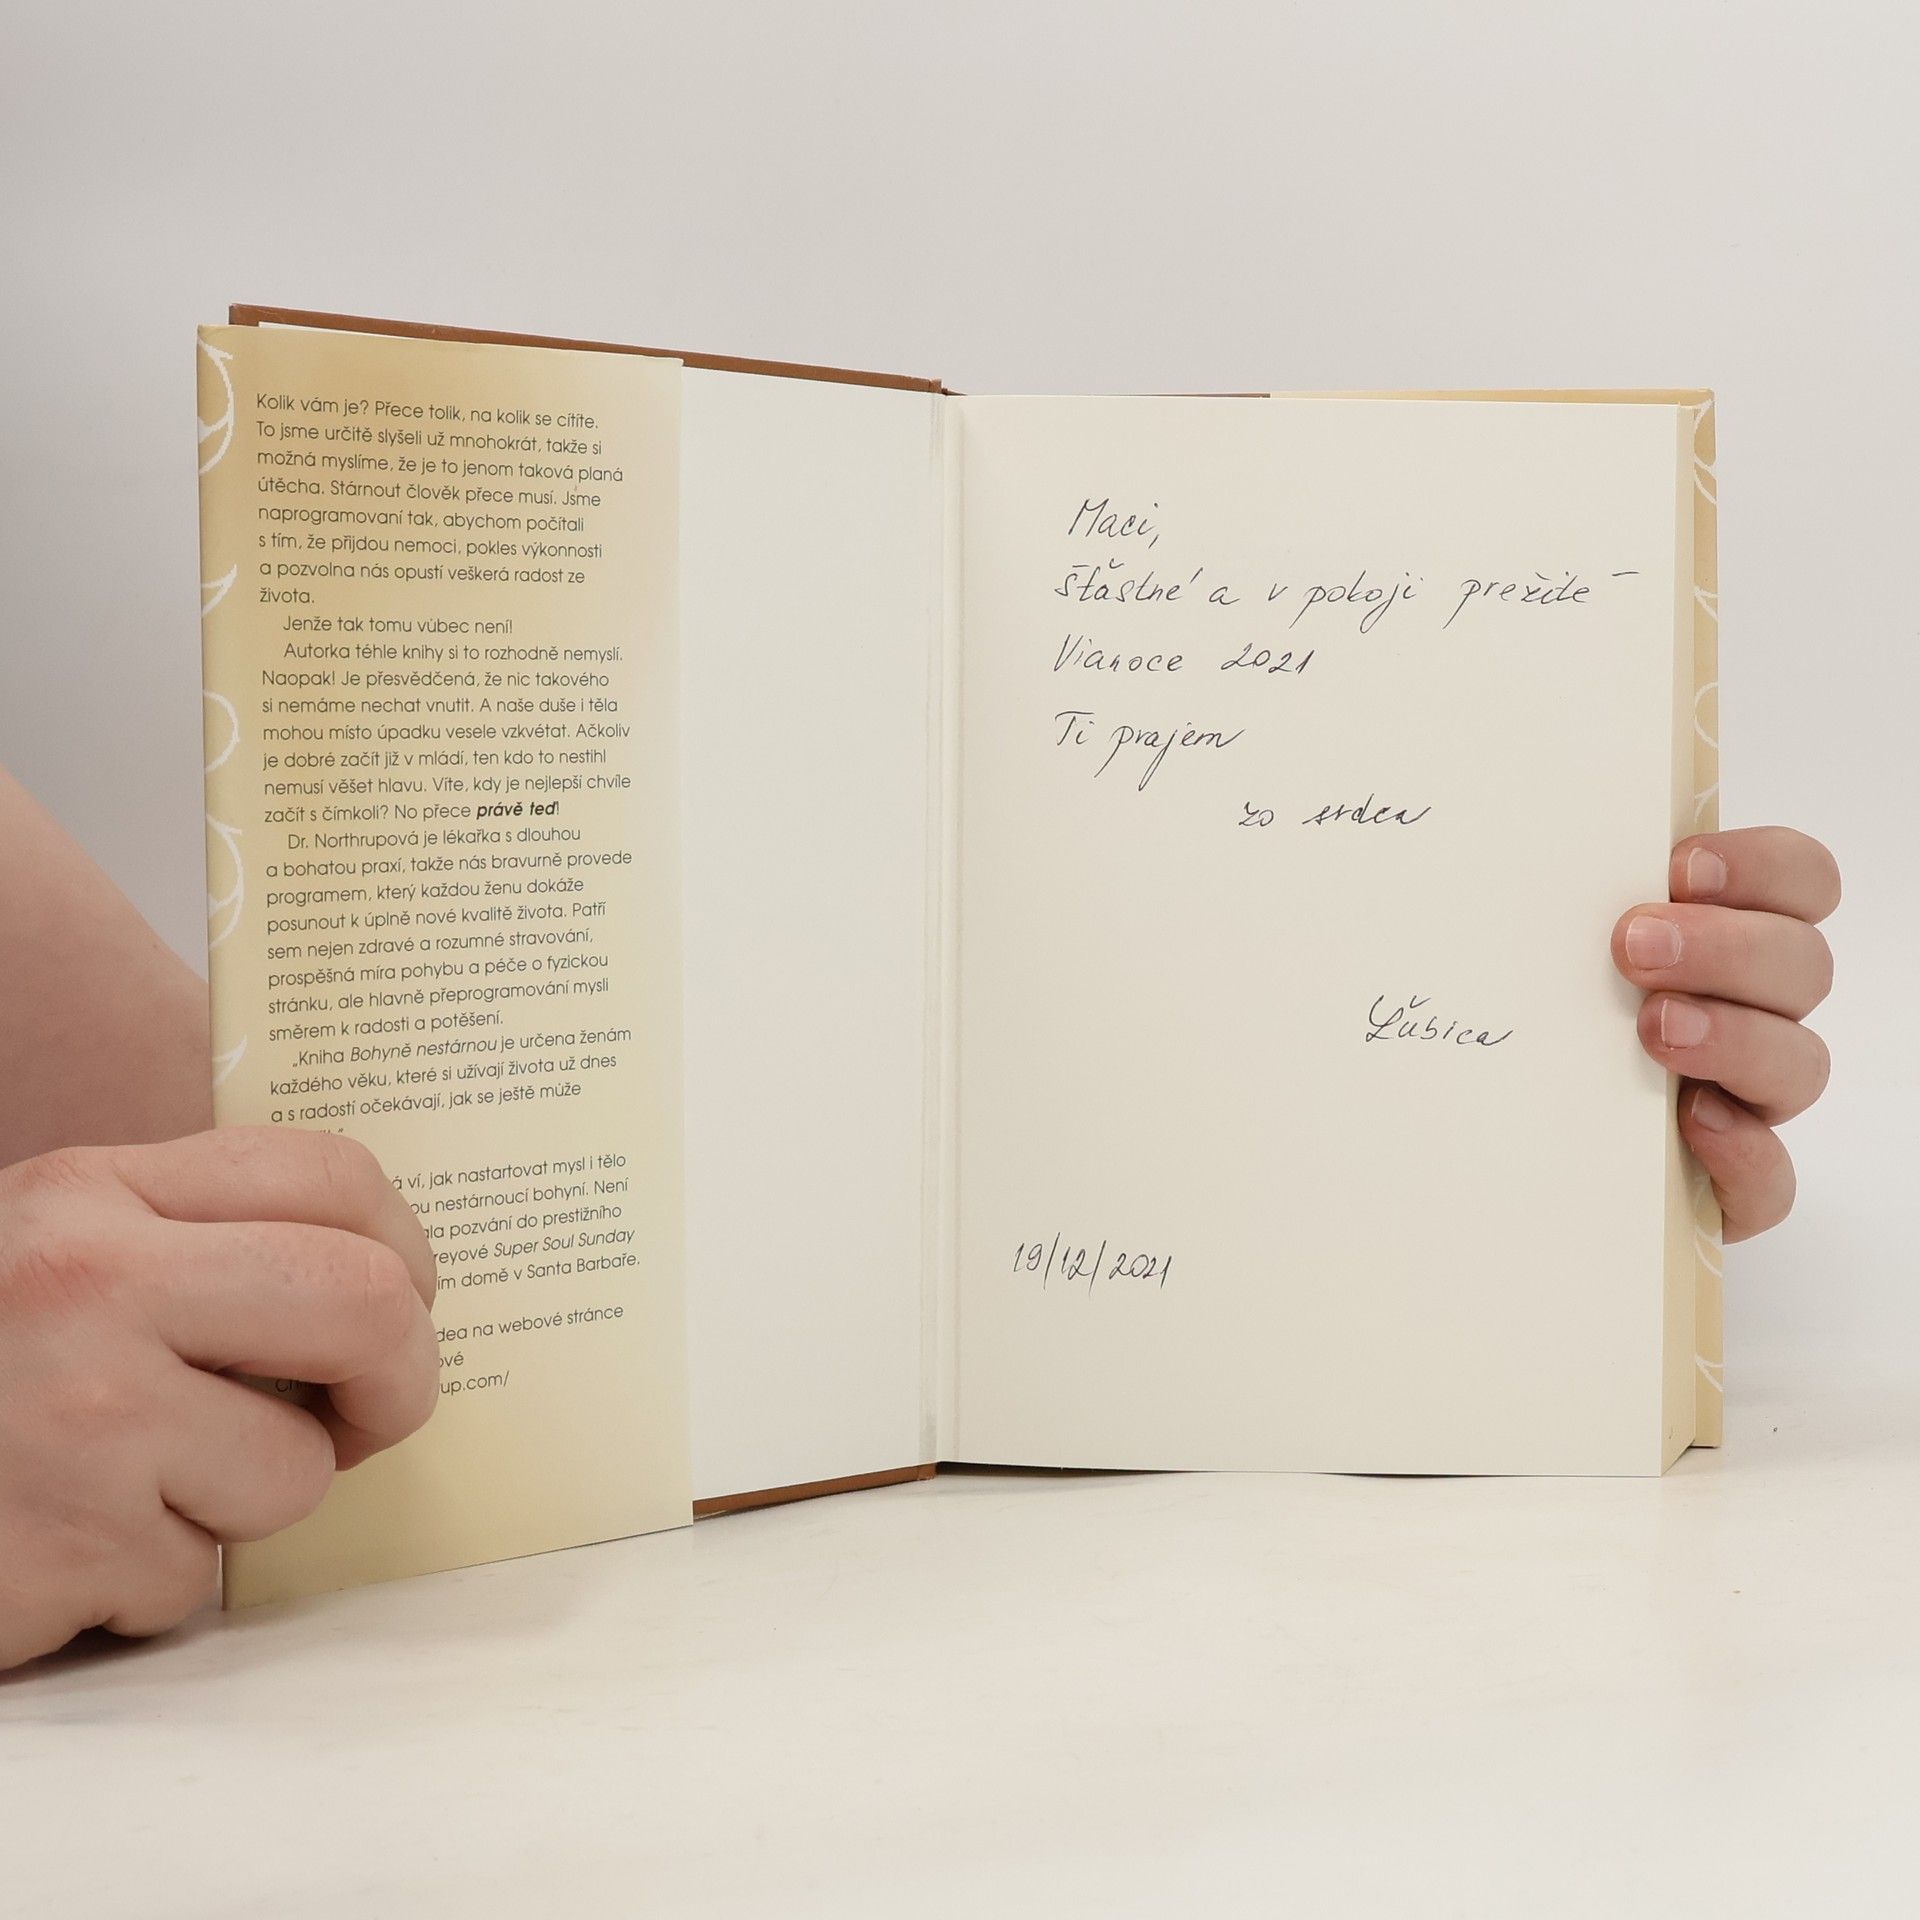 Kolik vám je? Přece tolik, na kolik se cítíte.
To jsme určitě slyšeli už mnohokrát, takže si
možná myslíme, že je to jenom taková planá
útěcha. Stárnout člověk přece musí. Jsme
naprogramovaní tak, abychom počítali
s tím, že přijdou nemoci, pokles výkonnosti
a pozvolna nás opustí veškerá radost ze
života.
Jenže tak tomu vůbec není!
Autorka téhle knihy si to rozhodně nemyslí.
Naopak! Je přesvědčená, že nic takového
si nemáme nechat vnutit. A naše duše i těla
mohou místo úpadku vesele vzkvétat. Ačkoliv
je dobré začít již v mládí, ten kdo to nestihl
nemusí věšet hlavu. Víte, kdy je nejlepší chvíle
začít s čímkoli? No přece právě teď!
Dr. Northrupová je lékařka s dlouhou
a bohatou praxí, takže nás bravurně provede
programem, který každou ženu dokáže
posunout k úplně nové kvalitě života. Patří
sem nejen zdravé a rozumné stravování,
prospěšná míra pohybu a péče o fyzickou
stránku, ale hlavně přeprogramování mysli
směrem k radosti a potěšení.
„Kniha Bohyně nestárnou je určena ženám
každého věku, které si užívají života už dnes
a s radostí očekávají, jak se ještě může
á ví, jak nastartovat mysl i tělo
ou nestárnoucí bohyní. Není
ala pozvání do prestižního
reyové Super Soul Sunday
ím domě v Santa Barbaře.
dea na webové stránce
ové
up.com/
Maci,
šťastné a v pokoji prežité
Vianoce 2021
Ti prajem
zo srdca
Ľubica
19/12/2021